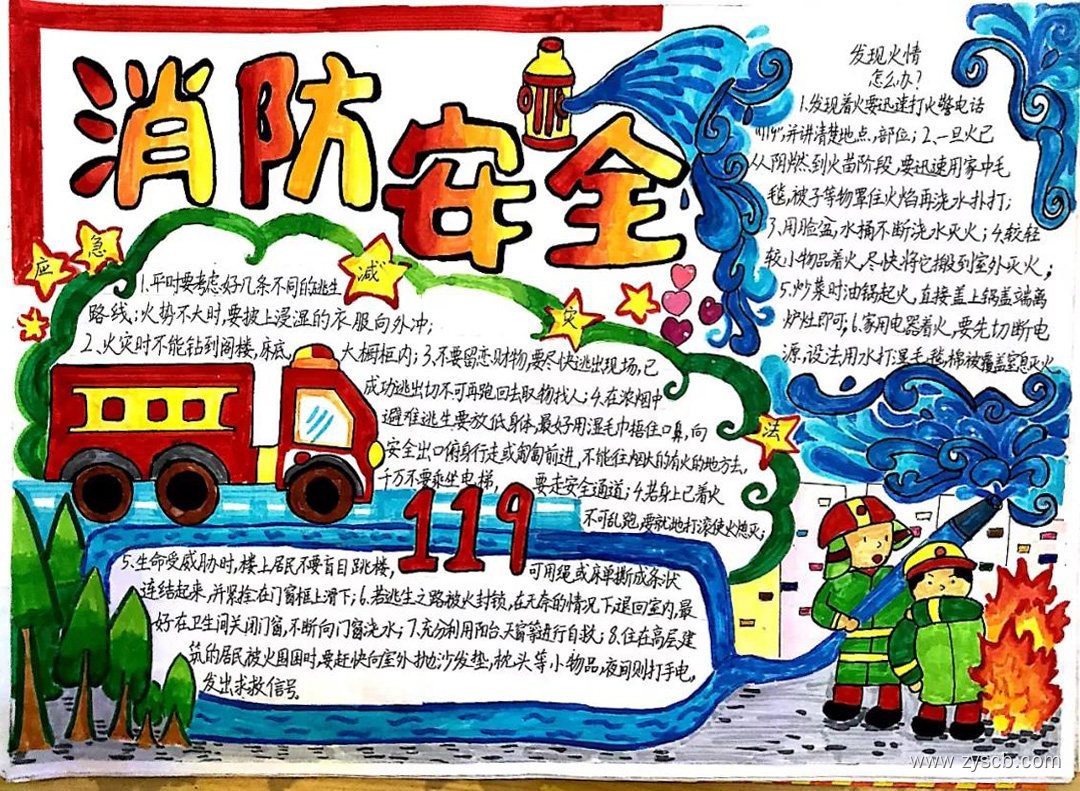 消防安全
应急减灾法
1.平时要考虑好几条不同的逃生
路线;火势不大时,要披上浸湿的衣服向外冲;
2、火灾时不能钻到阁楼,床底,大橱柜内;3、不要留恋财物,要尽快逃出现场,已
成功逃出切不可再跑回去取物找人;4.在浓烟中
避难逃生要放低身体,最好用湿毛巾捂住口鼻,向
安全出口俯身行走或匍匐前进,不能往有火的地方去,
千万不要乘坐电梯,要走安全通道;4.若身上已着火
不可乱跑,要就地打滚使火熄灭;
119
5.生命受威胁时,楼上居民不要盲目跳楼,可用绳或床单撕成条状
连结起来,并紧拴在门窗框上滑下;6.若逃生之路被火封锁,在无奈的情况下退回室内,最
好在卫生间关闭门窗,不断向门窗浇水;7.充分利用阳台、天窗等进行自救;8.住在高层建
筑的居民被火围困时,要赶快向室外抛沙发垫,枕头等小物品,夜间则打手电,
发出求救信号.
发现火情
怎么办?
1.发现着火要迅速打火警电话
"119",并讲清楚地点,部位;2、一旦火已
从阴燃到火苗阶段,要迅速用家中毛
毯,被子等物罩住火焰再浇水扑打;
3、用脸盆,水桶不断浇水灭火;4、较轻
较小物品着火,尽快将它搬到室外灭火;
5、炒菜时油锅起火,直接盖上锅盖端离
炉灶即可;6、家用电器着火,要先切断电
源,设法用水打湿毛毯,棉被覆盖窒息灭火
www.zyscb.com